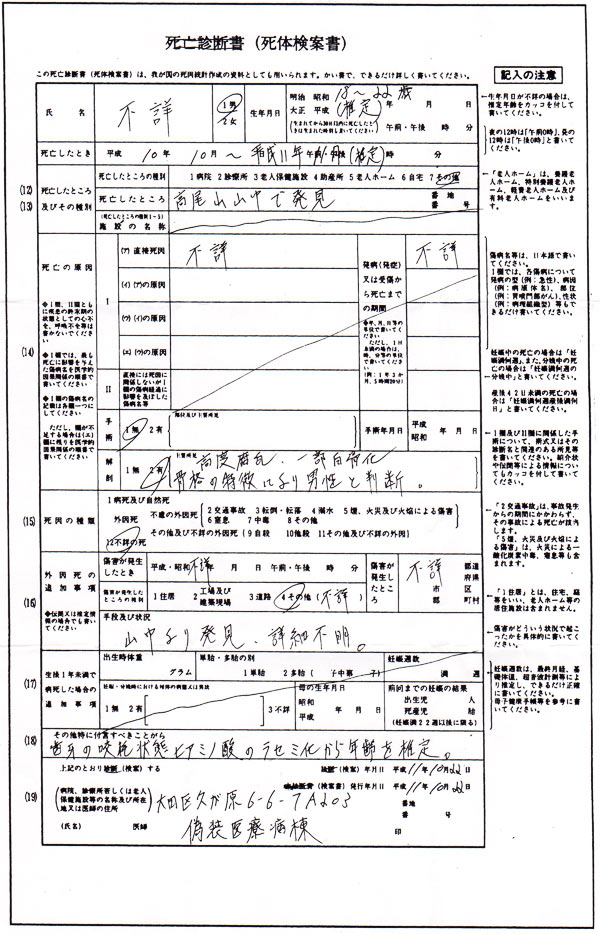 死亡診断書（死体検案書）
この死亡診断書（死体検案書）は、我が国の死因統計作成の資料としても用いられます。かい書で、できるだけ詳しく書いてください。
記入の注意
氏 名
不詳
1男
2女
生年月日
明治 昭和
大正 平成
18〜22歳
(推定)
年 月 日
(生まれてから30日以内に死亡したときは生まれた時刻も書いてください)
午前・午後 時 分
←生年月日が不詳の場合は、推定年齢をカッコを付して書いてください。
夜の12時は「午前0時」、昼の12時は「午後0時」と書いてください。
死亡したとき
平成 10年 10月 〜 平成11年 午前・午後 (推定) 時 分
(12)
(13)
死亡したところ及びその種別
死亡したところの種別
1病院 2診療所 3老人保健施設 4助産所 5老人ホーム 6自宅 7その他
死亡したところ
高尾山山中で発見
番地
番 号
(死亡したところの種別1~5)
施設の名称
←「老人ホーム」は、養護老人ホーム、特別養護老人ホーム、軽費老人ホーム及び有料老人ホームをいいます。
(14)
死亡の原因
◆Ⅰ欄、Ⅱ欄ともに疾患の終末期の状態としての心不全、呼吸不全等は書かないでください
◆Ⅰ欄では、最も死亡に影響を与えた傷病名を医学的因果関係の順番で書いてください
◆Ⅰ欄の傷病名の記載は各欄一つにしてください
ただし、欄が不足する場合は(エ)欄に残りを医学的因果関係の順番で書いてください
Ⅰ
(ア) 直接死因
不詳
(イ) (ア)の原因
(ウ) (イ)の原因
(エ) (ウ)の原因
Ⅱ
直接には死因に関係しないがⅠ欄の傷病経過に影響を及ぼした傷病名等
発病（発症）又は受傷から死亡までの期間
不詳
◆年、月、日等の単位で書いてください
ただし、1日未満の場合は、時、分等の単位で書いてください
(例：1年3か月、5時間20分)
傷病名等は、日本語で書いてください。
Ⅰ欄では、各傷病について発病の型(例：急性)、病因(例：病原体名)、部位(例：胃噴門部がん)、性状(例：病理組織型)等もできるだけ書いてください。
妊娠中の死亡の場合は「妊娠満何週」、また、分娩中の死亡の場合は「妊娠満何週の分娩中」と書いてください。
産後42日未満の死亡の場合は「妊娠満何週産後満何日」と書いてください。
手術
1無 2有
部位及び主要所見
手術年月日
平成
昭和
年 月 日
解剖
1無 2有
主要所見
高度腐乱、一部白骨化
骨格の特徴により男性と判断。
←Ⅰ欄及びⅡ欄に関係した手術について、術式又はその診断名と関連のある所見等を書いてください。紹介状や伝聞等による情報についてもカッコを付して書いてください。
(15)
死因の種類
1病死及び自然死
外因死
不慮の外因死
2交通事故 3転倒・転落 4溺水 5煙、火災及び火焔による傷害
6窒息 7中毒 8その他
その他及び不詳の外因死
9自殺 10他殺 11その他及び不詳の外因
12不詳の死
←「2交通事故」は、事故発生からの期間にかかわらず、その事故による死亡が該当します。
「5煙、火災及び火焔による傷害」は、火災による一酸化炭素中毒、窒息等も含まれます。
(16)
外因死の追加事項
◆伝聞又は推定情報の場合でも書いてください
傷害が発生したとき
平成・昭和 不詳 年 月 日 午前・午後 時 分
傷害が発生したところの種別
1住居 2工場及び建築現場 3道路 4その他（不詳）
傷害が発生したところ
不詳
都道
府県
市 区
郡 町村
手段及び状況
山中より発見、詳細不明。
←「1住居」とは、住宅、庭等をいい、老人ホーム等の居住施設は含まれません。
←傷害がどういう状況で起こったかを具体的に書いてください。
(17)
生後1年未満で病死した場合の追加事項
出生時体重
グラム
単胎・多胎の別
1単胎 2多胎（ 子中第 子）
妊娠週数
満 週
妊娠・分娩時における母体の病態又は異状
1無 2有
3不詳
母の生年月日
昭和
平成
年 月 日
前回までの妊娠の結果
出生児 人
死産児 胎
(妊娠満22週以後に限る)
←妊娠週数は、最終月経、基礎体温、超音波計測等により推定し、できるだけ正確に書いてください。
母子健康手帳等を参考に書いてください。
(18)
その他特に付言すべきことがら
歯牙の咬耗状態とアミノ酸のラセミ化から年齢を推定。
(19)
上記のとおり診断（検案）する
診断（検案）年月日 平成 11年 10月 22日
診断書（検案書）発行年月日 平成 11年 10月 22日
病院、診療所若しくは老人保健施設等の名称及び所在地又は医師の住所
大田区久が原6-6-7 A203
番地
番 号
(氏名) 医師
偽装医療病棟
印